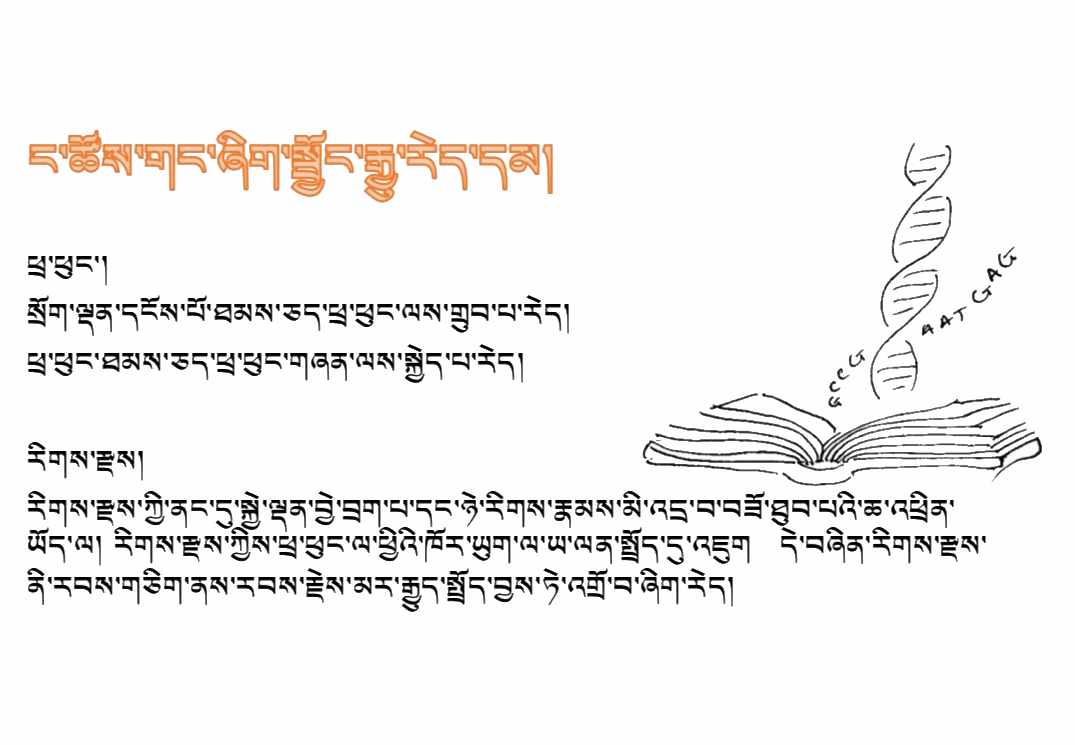 ང་ཚོས་གང་ཞིག་སྦྱོང་རྒྱུ་རེད་དམ།
ཕྲ་ཕུང་།
སྲོག་ལྡན་དངོས་པོ་ཐམས་ཅད་ཕྲ་ཕུང་ལས་གྲུབ་པ་རེད།
ཕྲ་ཕུང་ཐམས་ཅད་ཕྲ་ཕུང་གཞན་ལས་སྐྱེད་པ་རེད།
རིགས་རྫས།
རིགས་རྫས་ཀྱི་ནང་དུ་སྐྱེ་ལྡན་བྱེ་བྲག་པ་དང་ཉེ་རིགས་རྣམས་མི་འདྲ་བ་བཟོ་ཐུབ་པའི་ཆ་འཕྲིན་
ཡོད་ལ། རིགས་རྫས་ཀྱིས་ཕྲ་ཕུང་ལ་ཕྱིའི་ཁོར་ཡུག་ལ་ཡ་ལན་སྤྲོད་དུ་འཇུག དེ་བཞིན་རིགས་རྫས་
ནི་རབས་གཅིག་ནས་རབས་རྗེས་མར་རྒྱུད་སྤྲོད་བྱས་ཏེ་འགྲོ་བ་ཞིག་རེད།
GCCG
AATGAG